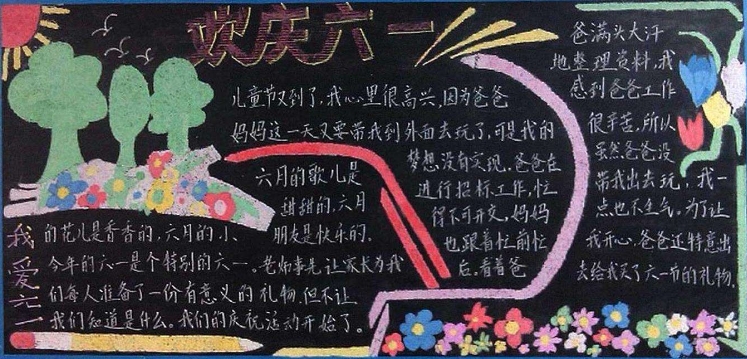 欢庆六一
儿童节又到了，我心里很高兴，因为爸爸
妈妈这一天又要带我到外面去玩了，可是我的
梦想没有实现。爸爸在
进行招标工作，忙
得不可开交，妈妈
也跟着忙前忙
后，看着爸
爸满头大汗
地整理资料，我
感到爸爸工作
很辛苦，所以
虽然爸爸没
带我出去玩，我一
点也不生气。为了让
我开心，爸爸还特意出
去给我买了六一节的礼物。
我爱六一
六月的歌儿是
甜甜的，六月
的花儿是香香的，六月的小
朋友是快乐的。
今年的六一是个特别的六一。老师事先让家长为我
们每人准备了一份有意义的礼物，但不让
我们知道是什么。我们的庆祝活动开始了。